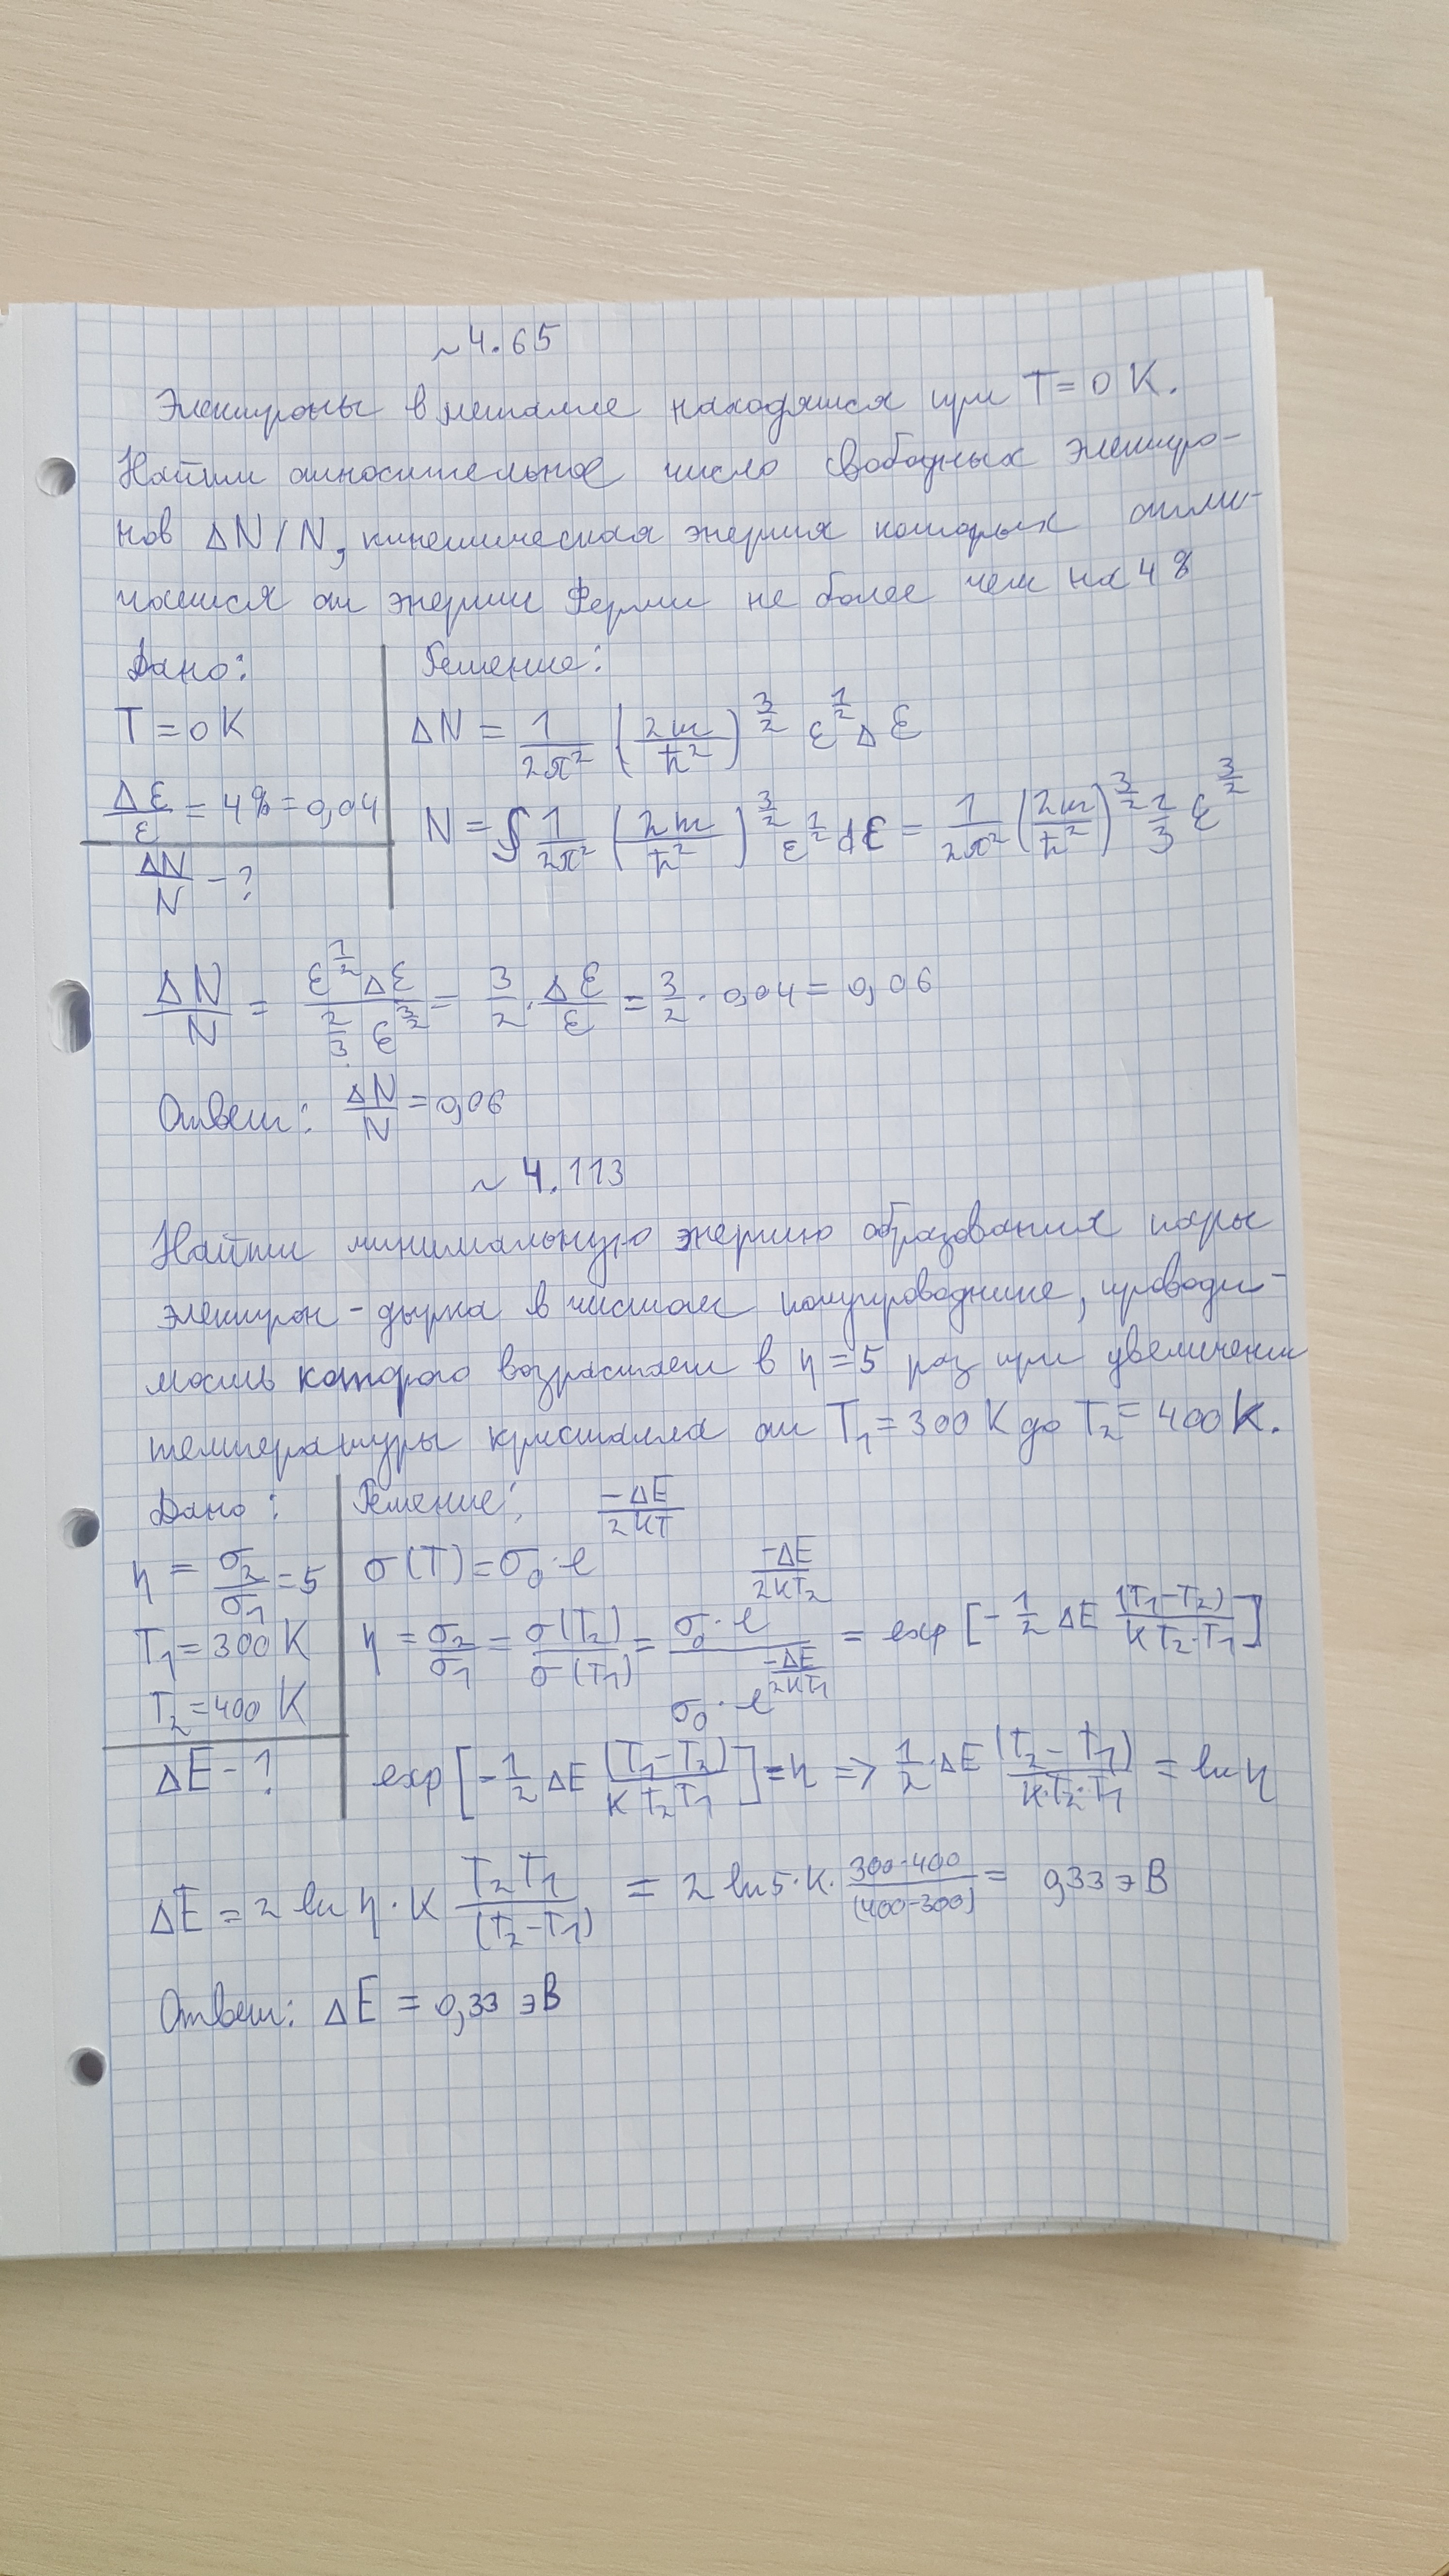 ~ 4.65
Электроны в металле находятся при T = 0 K.
Найти относительное число свободных электро-
нов ΔN/N, кинетическая энергия которых отли-
чается от энергии Ферми не более чем на 4%
Дано: Решение:
T = 0 K ΔN = 1/(2π²) (2m/ħ²)^(3/2) ε^(1/2) Δε
Δε/ε = 4% = 0,04 N = ∫ 1/(2π²) (2m/ħ²)^(3/2) ε^(1/2) dε = 1/(2π²) (2m/ħ²)^(3/2) 2/3 ε^(3/2)
ΔN/N - ?
ΔN/N = ε^(1/2) Δε / (2/3 ε^(3/2)) = 3/2 · Δε/ε = 3/2 · 0,04 = 0,06
Ответ: ΔN/N = 0,06
~ 4.113
Найти минимальную энергию образования пары
электрон - дырка в чистом полупроводнике, проводи-
мость которого возрастает в η = 5 раз при увеличении
температуры кристалла от T₁ = 300 K до T₂ = 400 K.
Дано: Решение:
η = σ₂/σ₁ = 5 σ(T) = σ₀ · e^(-ΔE/2kT)
T₁ = 300 K η = σ₂/σ₁ = σ(T₂)/σ(T₁) = σ₀ · e^(-ΔE/2kT₂) / σ₀ · e^(-ΔE/2kT₁) = exp [- 1/2 ΔE (T₁-T₂)/(k T₂·T₁)]
T₂ = 400 K
ΔE - ? exp [- 1/2 ΔE (T₁-T₂)/(k T₂T₁)] = η => 1/2 · ΔE (T₂-T₁)/(k·T₂·T₁) = ln η
ΔE = 2 ln η · k T₂T₁/(T₂-T₁) = 2 ln 5 · k · 300·400/(400-300) = 0,33 эВ
Ответ: ΔE = 0,33 эВ